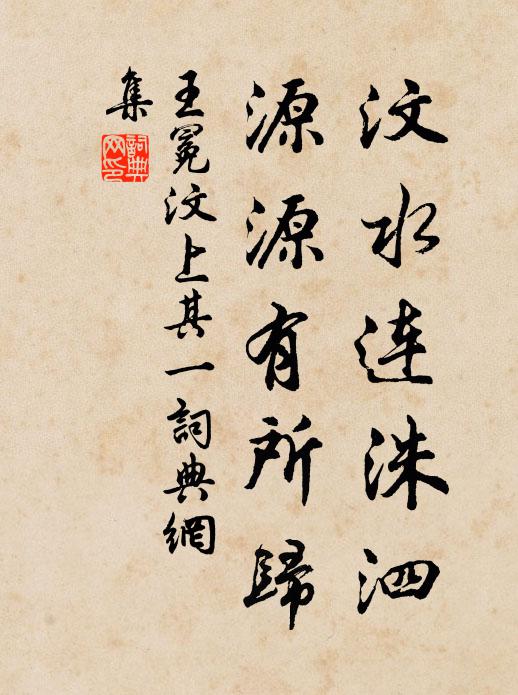 汶水连洙泗
源源有所歸
王冕汶上其一詞典網
集
詞典
网印